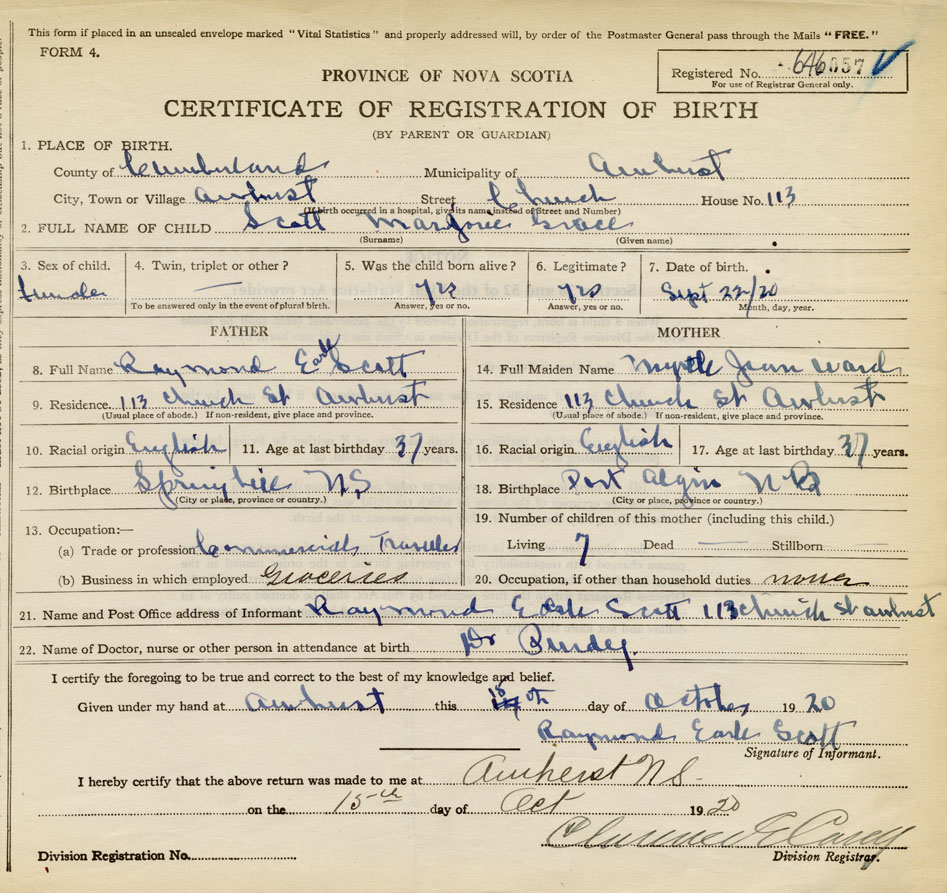 This form if placed in an unsealed envelope marked "Vital Statistics" and properly addressed will, by order of the Postmaster General pass through the Mails "FREE."
FORM 4.
PROVINCE OF NOVA SCOTIA
Registered No. 646057
For use of Registrar General only.
CERTIFICATE OF REGISTRATION OF BIRTH
(BY PARENT OR GUARDIAN)
1. PLACE OF BIRTH.
County of Cumberland Municipality of Amherst
City, Town or Village Amherst Street Church House No. 113
(If birth occurred in a hospital, give its name instead of Street and Number)
2. FULL NAME OF CHILD Scott Marjorie Grace
(Surname) (Given name)
3. Sex of child. 4. Twin, triplet or other? 5. Was the child born alive? 6. Legitimate? 7. Date of birth.
female — yes yes Sept 22/20
To be answered only in the event of plural birth. Answer, yes or no. Answer, yes or no. Month, day, year.
FATHER MOTHER
8. Full Name Raymond Earle Scott 14. Full Maiden Name Myrtle Jean Ward
9. Residence. 113 Church St Amherst 15. Residence 113 Church St Amherst
(Usual place of abode.) If non-resident, give place and province. (Usual place of abode.) If non-resident, give place and province.
10. Racial origin English 11. Age at last birthday 37 years. 16. Racial origin English 17. Age at last birthday 37 years.
12. Birthplace Springhill N.S 18. Birthplace Port Elgin N B
(City or place, province or country.) (City or place, province or country.)
13. Occupation:— 19. Number of children of this mother (including this child.)
(a) Trade or profession Commercial Traveller Living 7 Dead — Stillborn —
(b) Business in which employed Groceries 20. Occupation, if other than household duties none
21. Name and Post Office address of Informant Raymond Earle Scott 113 Church St Amherst
22. Name of Doctor, nurse or other person in attendance at birth Dr Purdey.
I certify the foregoing to be true and correct to the best of my knowledge and belief.
Given under my hand at Amherst this 15 th day of October 19 20
Raymond Earle Scott
Signature of Informant.
I hereby certify that the above return was made to me at Amherst N.S.
on the 15th day of Oct 19 20
Clarence E Casey
Division Registration No. Division Registrar.